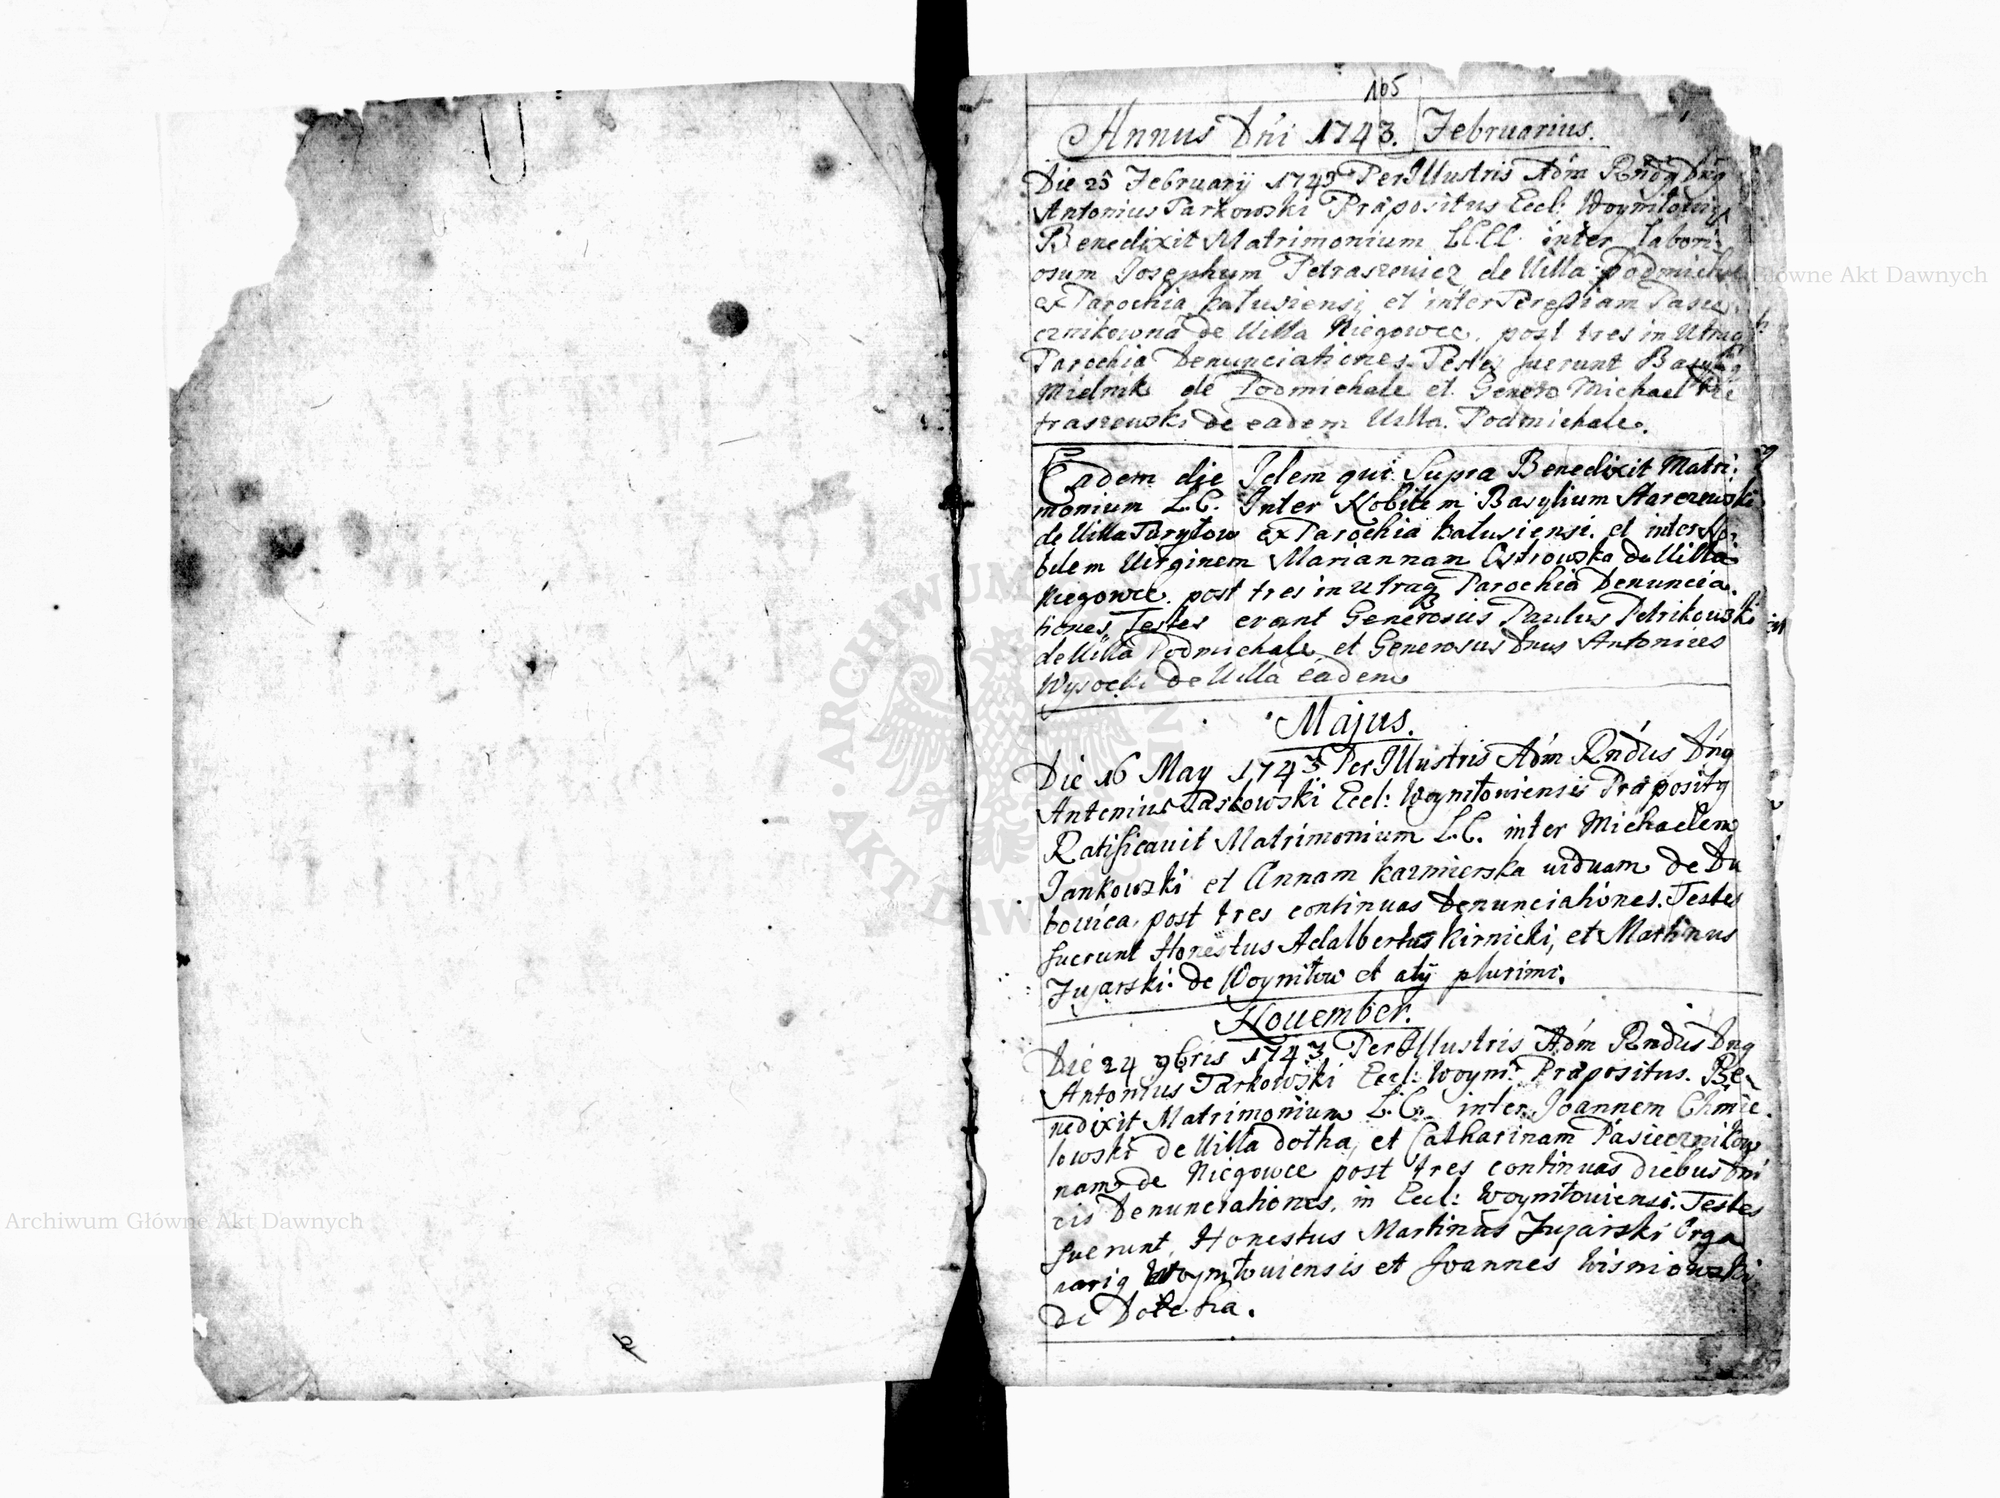 165
Annus Dni 1743. Februarius.
Die 25 February 1743 Per Illustris Adm Rndq Dnq
Antonius Tarkowski Præpositus Eccl: Woyniłowiẽ
Benedixit Matrimonium LL.CC. inter Labori-
osum Josephum Petraszewicz de Villa Podmichale
ex Parochia Kałusiensi et inter Perestiam Pasie
cznikowna de Villa Niegowce. post tres in Utraq
Parochia Denunciationes. Testes fuerunt Basyliq
Mielnik de Podmichale et Genero Michael Pie
traszewski de eadem Villa. Podmichale.
Eadem die Idem qui Supra Benedixit Matri:
monium L.C. Inter Nobilem Basylium Starczewski
de Villa Turyłow ex Parochia Kałusiensi. et inter No-
bilem Virginem Mariannam Ostrowska de Villa
Niegowce. post tres in Utraq Parochia Denuncia-
tiones, Testes erant Generosus Paulus Petrikowski
de Villa Podmichale et Generosus Dnus Antonius
Wysocki de Villa eadem
Majus.
Die 16 May 1743 Per Illustris Adm Rndus Dnq
Antonius Tarkowski Eccl: Woyniłowiensis Præpositq
Ratificauit Matrimonium L.C. inter Michaelem
Jankowski et Annam Kazmierska viduam de Du
bowica, post tres continuas Denunciationes. Testes
fuerunt Honestus Adalbertus Kirnicki, et Martinus
Jujarski de Woyniłow et alij plurimi.
Nouember.
Die 24 9bris 1743 Per Illustris Adm Rndus Dnq
Antonius Tarkowski Eccl: Woym: Præpositus. Be-
nedixit Matrimonium L.C. inter Joannem Chmie-
lowski de Villa dołha, et Catharinam Pasiecznikow
nam de Niegowce post tres continuas diebus Dni
cis Denunciationes, in Eccl: Woyniłowiensi. Testes
fuerunt, Honestus Martinus Jujarski Orga
nariq Woyniłowiensis et Joannes Wisniowski
de Dołha.
Archiwum Główne Akt Dawnych
Główne Akt Dawnych
ARCHIWUM GŁÓWNE AKT DAWNYCH